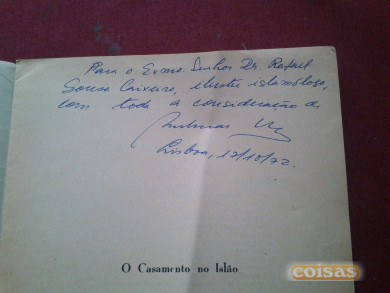 Para o Exmo. Senhor Dr. Rafael
Sousa Caixeiro, ilustre islamólogo,
com toda a consideração de
Lisboa, 17/10/72.
O Casamento no Islão
coisas